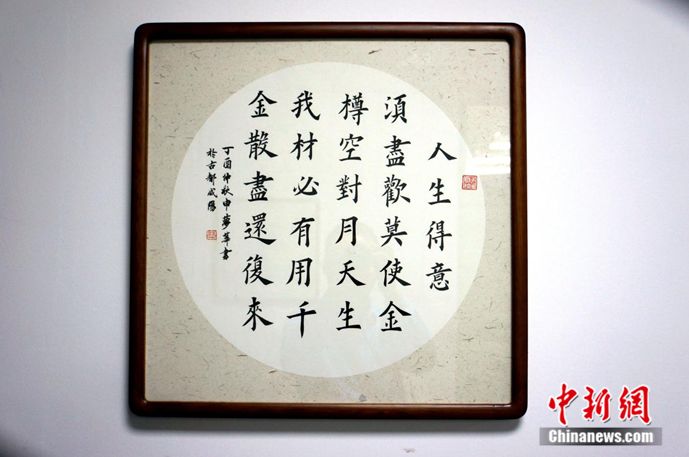 人生得意
須盡歡莫使金
樽空對月天生
我材必有用千
金散盡還復來
丁酉仲秋申夢革書
於古都咸陽
中新網
Chinanews.com